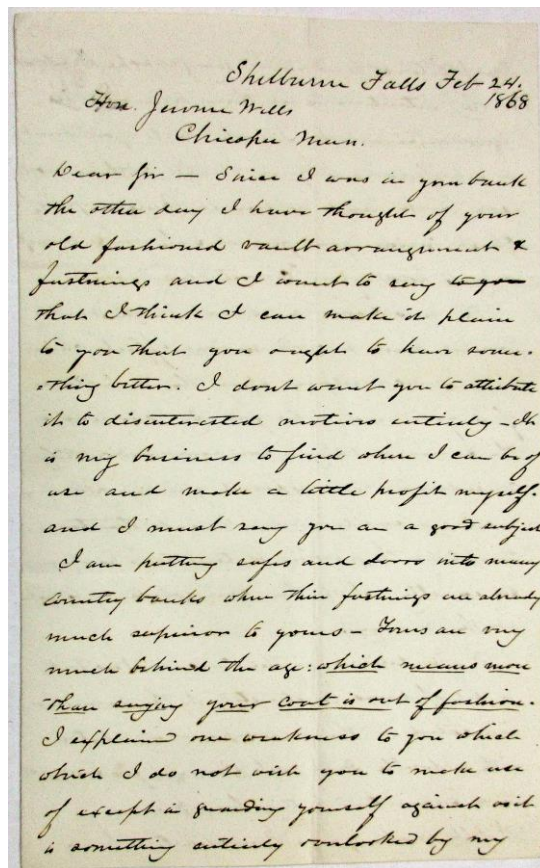 Shelburne Falls Feb 24.
1868
Hon. Jerome Wells
Chicopee Mass.
Dear Sir – Since I was in your bank
the other day I have thought of your
old fashioned vault arrangement &
fastnings and I want to say to you
that I think I can make it plain
to you that you ought to have some-
thing better. I dont want you to attribute
it to disinterested motives entirely – It
is my business to find where I can be of
use and make a little profit myself.
and I must say you are a good subject
I am putting safes and doors into many
country banks where their fastnings are already
much superior to yours – Yours are very
much behind the age: which means more
than saying your coat is out of fashion.
I explained one weakness to you which
which I do not wish you to make use
of except in guarding yourself against as it
is something entirely overlooked by my